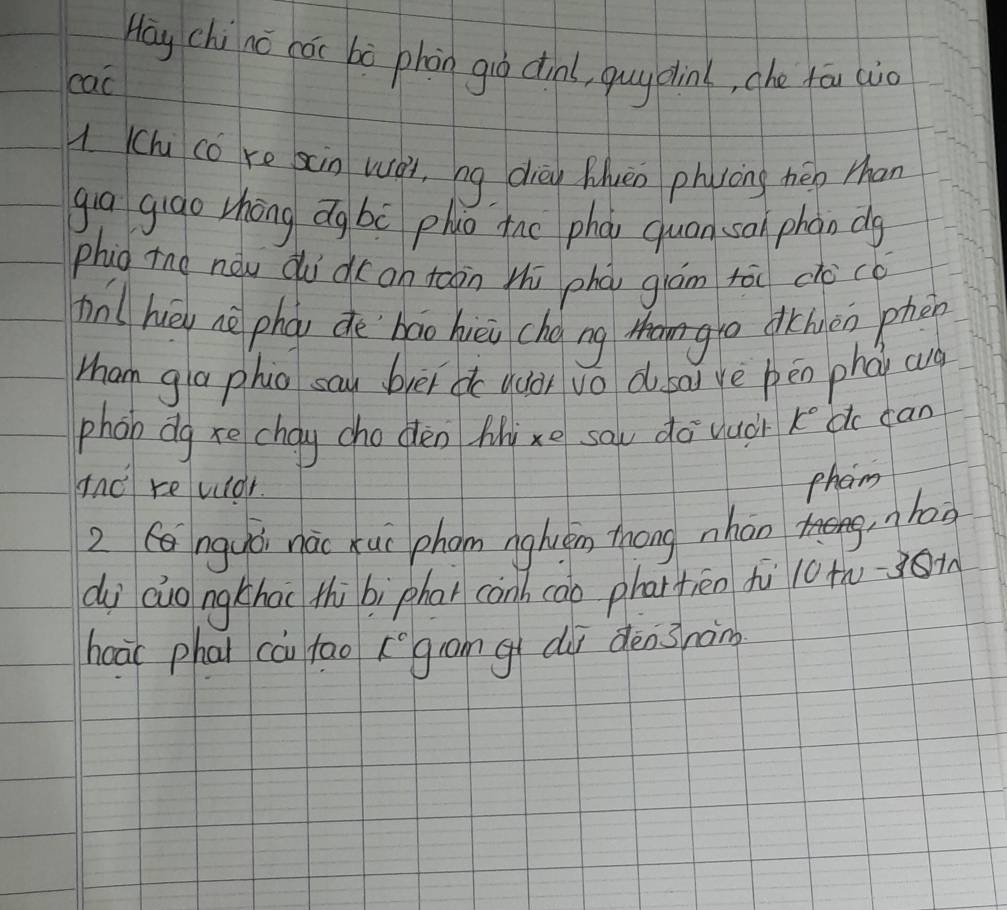 Hãy chỉ rõ các bộ phận giả định, quy định, chế tài của
các
1 Khi có xe xin vượt, ng điều khiển phương tiện tham
gia giao thông đg bộ phía trc phải quan sát phần đg
phía trc nếu đủ đk an toàn thì phải giảm tốc độ có
tính hiệu rẽ phải để báo hiệu cho ng tham gia đkhiển phtiện
tham gia phía sau biết đc vượt và đi sát về bên phải của
phần đg xe chạy cho đến khi xe sau đã vượt k° đc cản
trở xe vượt.
2 Có người nào xúc phạm nghiêm trọng nhân phẩm, nhân
dự của ng khác thì bị phạt cảnh cáo phạt tiền từ 10tr - 30tr
hoặc phạt cải tạo k° giam giữ đến 3 năm.